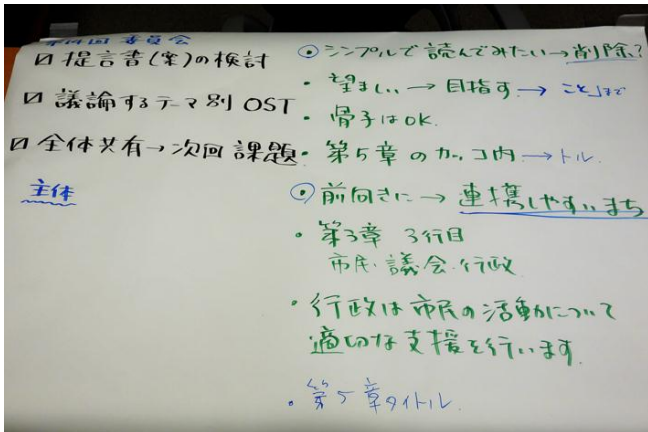 委員会
☑ 提言書(案)の検討
☑ 議論するテーマ別 OST
☑ 全体共有→次回課題
主体
◎シンプルで読んでみたい→削除?
・望ましい→目指す→こと」まで
・骨子はOK.
・第5章のカッコ内→トル.
◎前向きに→連携しやすいまち
・第3章 3行目
市民・議会・行政
・行政は市民の活動について
適切な支援を行います
・第5章タイトル.